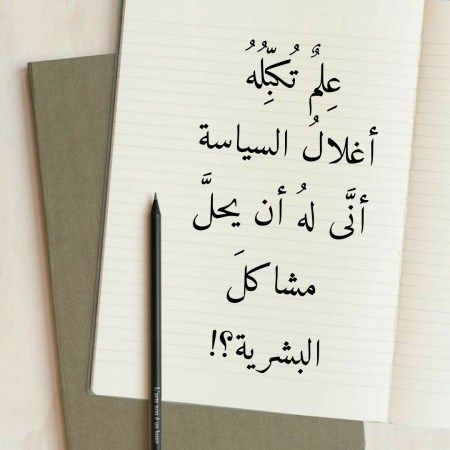 عِلمٌ تُكبِّلُهُ
أغلالُ السياسة
أنَّى لهُ أن يحلَّ
مشاكلَ
البشرية؟!